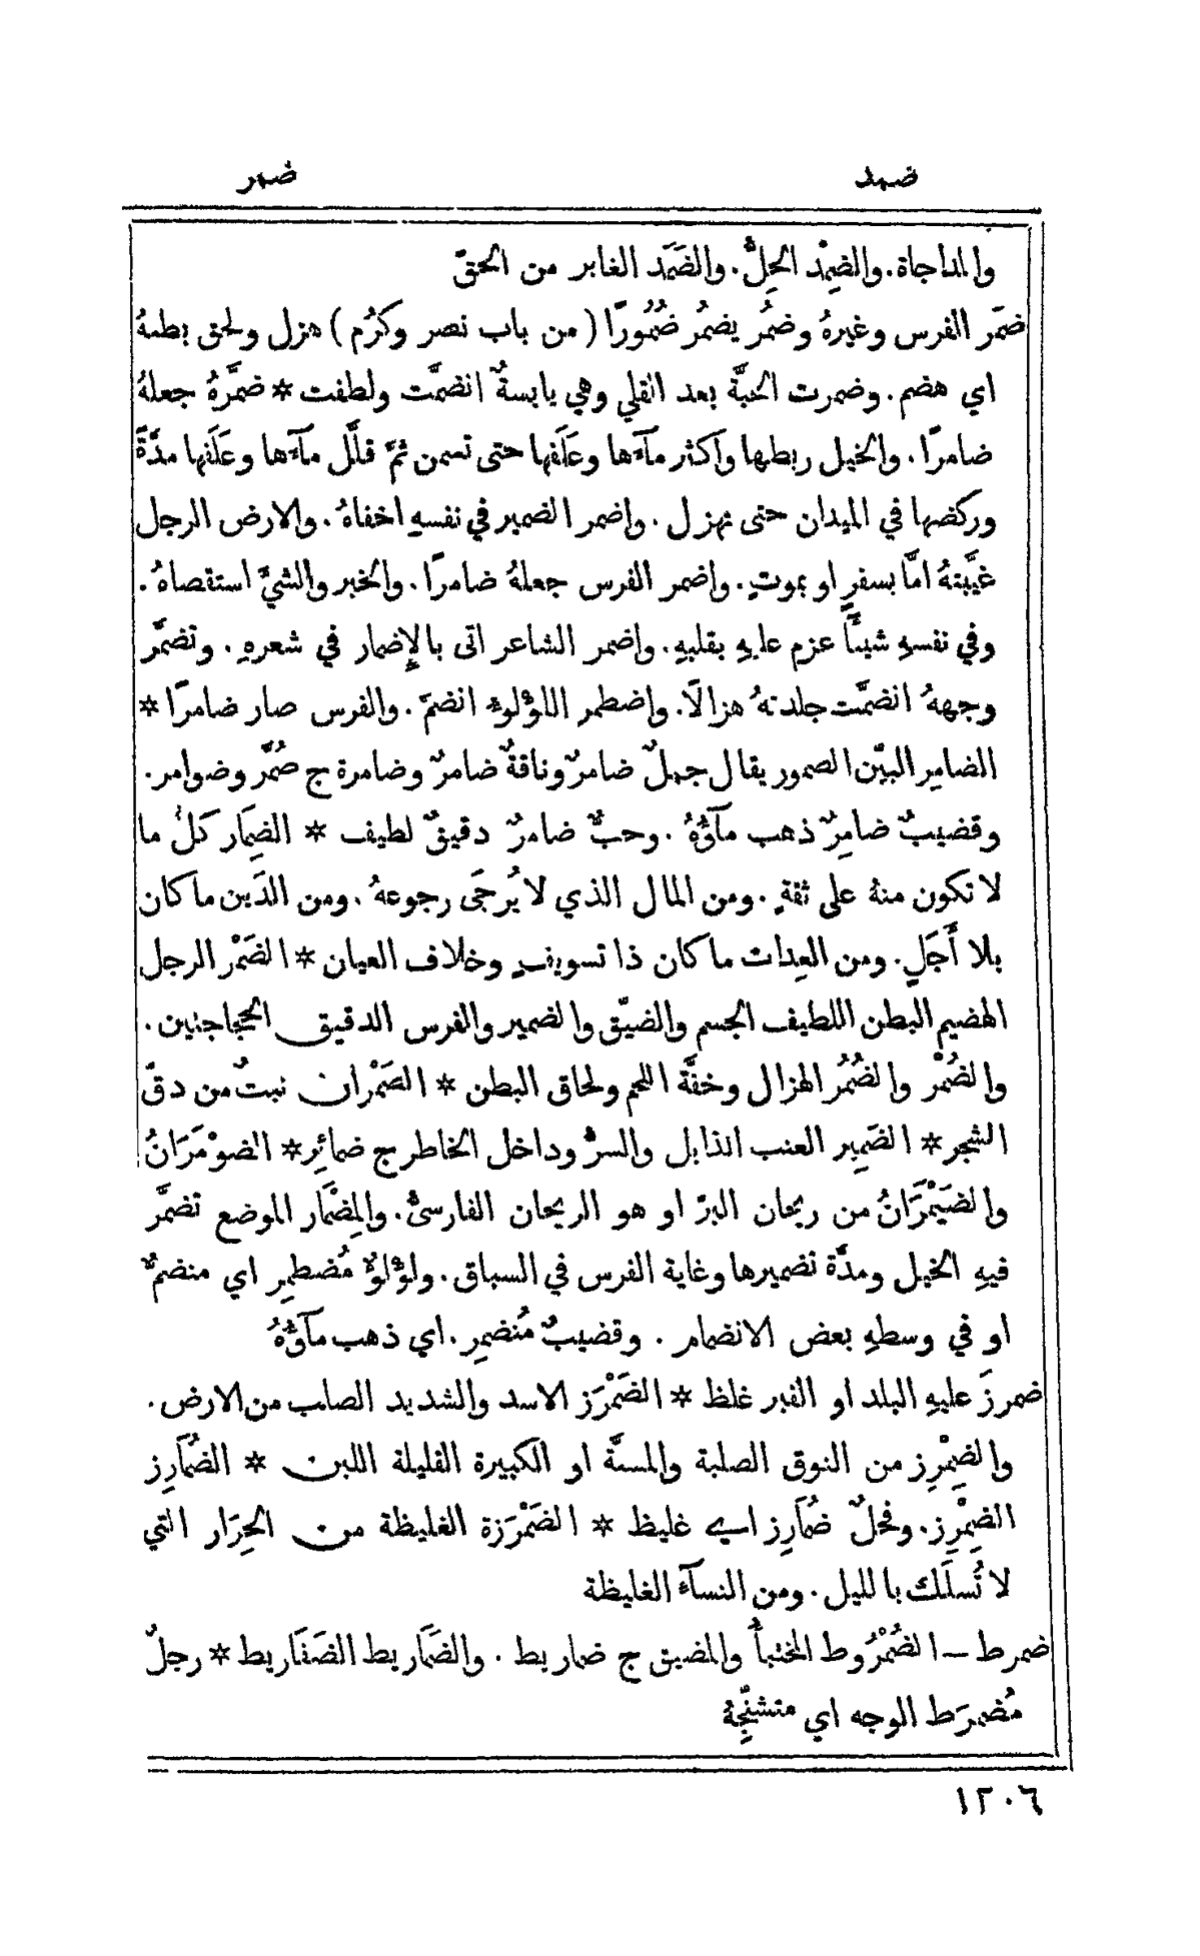 ضمد
ضمر
والمداجاة. والضِمْد الخِلُّ. والضَمَد الغابر من الحقّ
ضمَر الفرس وغيرهُ وضمُر يضمُر ضُمُورًا (من باب نصر وكرُم) هزل ولحق بطنهُ
اي هضم. وضمرت الحبَّة بعد القلي وهي يابسةٌ انضمَّت ولطفت * ضمَّرهُ جعلهُ
ضامرًا. والخيل ربطها واكثر مآءَها وعَلَفها حتى تسمن ثمَّ قلَّل مآءَها وعَلَفها مدَّةً
وركضها في الميدان حتى تهزل. واضمر الضمير في نفسهِ اخفاهُ. والارض الرجل
غيَّبتهُ امَّا بسفرٍ او بموتٍ. واضمر الفرس جعلهُ ضامرًا. والخبر والشيَّ استقصاهُ.
وفي نفسهِ شيئًا عزم عليهِ بقلبهِ. واضمر الشاعر اتى بالإِضمار في شعرهِ. وتضمَّر
وجههُ انضمَّت جلدتهُ هزالًا. واضطمر اللؤلوءُ انضمَّ. والفرس صار ضامرًا *
الضامِر البيّن الضمور يقال جملٌ ضامرٌ وناقةٌ ضامرٌ وضامرة ج ضُمَّر وضوامر.
وقضيبٌ ضامِرٌ ذهب مآؤُهُ. وحبٌّ ضامرٌ دقيقٌ لطيف * الضِمَار كلُّ ما
لا تكون منهُ على ثقةٍ. ومن المال الذي لا يُرجَى رجوعهُ. ومن الدَين ما كان
بلا أَجَلٍ. ومن العِدات ما كان ذا تسويفٍ وخلاف العيان * الضَمْر الرجل
الهضيم البطن اللطيف الجسم والضيّق والضمير والفرس الدقيق الحجاجين.
والضُمْر والضُمُر الهزال وخفَّة اللحم ولحاق البطن * الضَمْران نبتٌ من دقّ
الشجر * الضَمِير العنب الذابل والسرُّ وداخل الخاطر ج ضمائِر * الضوْمَرَانُ
والضَيْمَرَانُ من ريحان البرّ او هو الريحان الفارسيُّ. والمِضْمَار الموضع تضمَّر
فيهِ الخيل ومدَّة تضميرها وغاية الفرس في السباق. ولؤْلوءٌ مُضطمِر اي منضمٌّ
او في وسطهِ بعض الانضمام. وقضيبٌ مُنضمِر. اي ذهب مآؤُهُ
ضمرزَ عليهِ البلد او القبر غلظ * الضَمْرَز الاسد والشديد الصلب من الارض.
والضِمْرِز من النوق الصلبة والمسنَّة او الكبيرة القليلة اللبن * الضُمَارِز
الضِمْرِز. وفحلٌ ضُمَارِز اي غليظ * الضَمْرَزة الغليظة من الحِرَار التي
لا تُسلَك بالليل. ومن النسآءُ الغليظة
ضمرط ـ الضُمْرُوط المختبأُ والمضيق ج ضماريط. والضَمَاريط الضَفَاريط * رجلٌ
مُضمرَط الوجه اي متشنِّجهُ
١٢٠٦